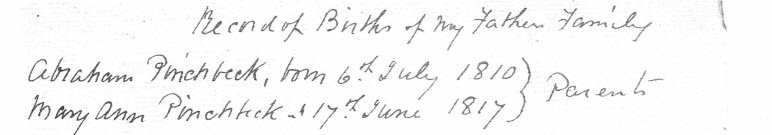 Record of Births of my Father Family
Abraham Pinchbeck, born 6th July 1810 } Parents
Mary Ann Pinchbeck " 17th June 1817 }